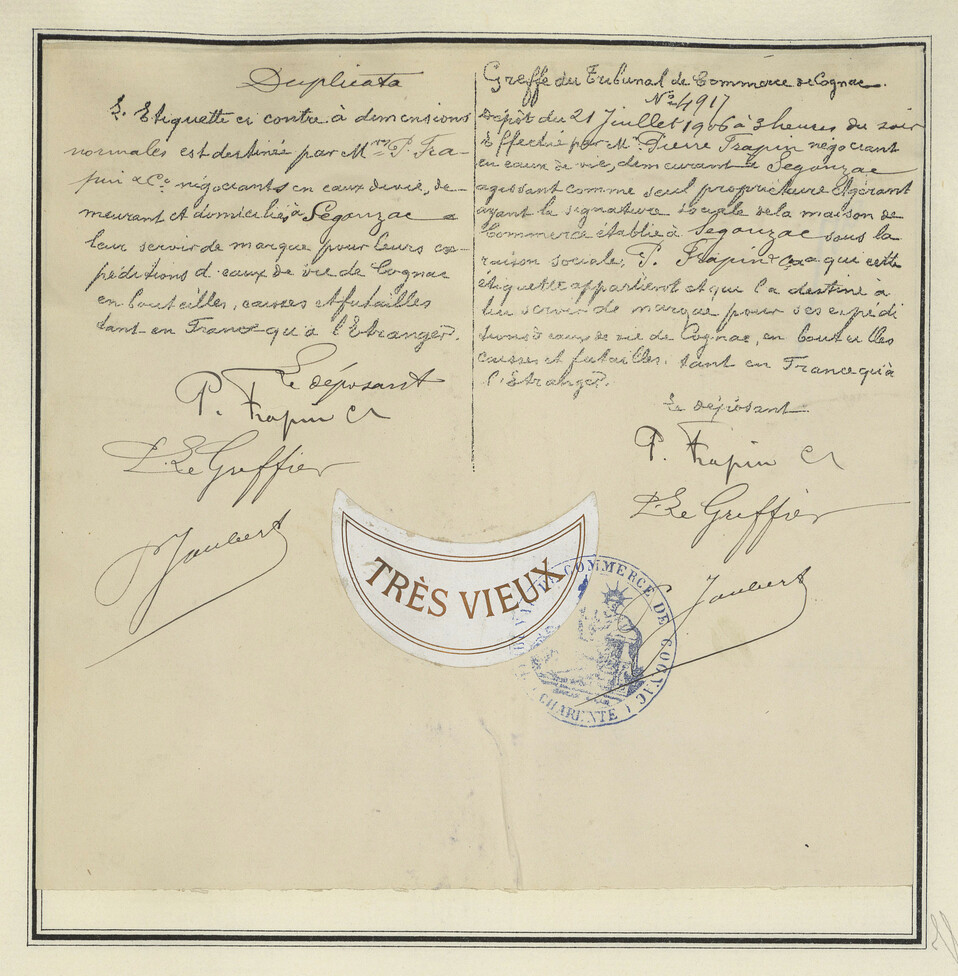 Duplicata
L'Etiquette ci contre à dimensions
normales est destinée par Mrs P. Fra-
pin & Co négociants en eaux de vie, de-
meurant et domiciliés à Segonzac a
leur servir de marque pour leurs ex-
péditions d'eaux de vie de Cognac
en bouteilles, caisses et futailles
tant en France qu'à l'Etranger.
Le déposant
P. Frapin Co
Le Greffier
Joubert
Greffe du Tribunal de Commerce de Cognac.
No 4917
Dépôt du 21 Juillet 1906 à 3 heures du soir
Effectué par Mr Pierre Frapin négociant
en eaux de vie, demeurant à Segonzac
agissant comme seul propriétaire et gérant
ayant la signature sociale de la maison de
Commerce établie à Segonzac sous la
raison sociale, P. Frapin & Co a qui cette
étiquette appartient et qui l'a destiné a
lui servir de marque pour ses expédi
tions d'eaux de vie de Cognac, en bouteilles
caisses et futailles, tant en France qu'à
l'Etranger.
Le déposant
P. Frapin Co
Le Greffier
Joubert
TRÈS VIEUX
COMMERCE DE COGNAC
CHARENTE